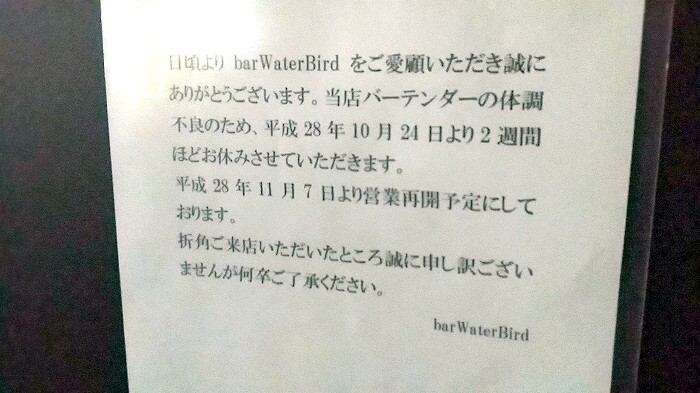 日頃より barWaterBird をご愛顧いただき誠に
ありがとうございます。当店バーテンダーの体調
不良のため、平成 28 年 10 月 24 日より 2 週間
ほどお休みさせていただきます。
平成 28 年 11 月 7 日より営業再開予定にして
おります。
折角ご来店いただいたところ誠に申し訳ござい
ませんが何卒ご了承ください。
barWaterBird